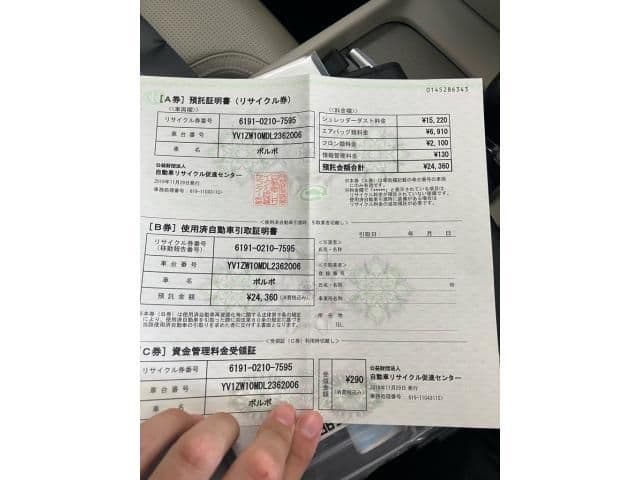 0145286343
[A券] 預託証明書（リサイクル券）
<車両欄>
リサイクル券番号 6191-0210-7595
車台番号 YV1ZW10MDL2362006
車名 ボルボ
<料金欄>
シュレッダーダスト料金 ¥15,220
エアバッグ類料金 ¥6,910
フロン類料金 ¥2,100
情報管理料金 ¥130
預託金額合計 ¥24,360
公益財団法人
自動車リサイクル促進センター
[B券] 使用済自動車引取証明書
リサイクル券番号
(移動報告番号) 6191-0210-7595
車台番号 YV1ZW10MDL2362006
車名 ボルボ
預託金額 ¥24,360 (消費税込み)
引取日 年 月 日
氏名・名称
登録番号
氏名・名称
事業所名称
所在地
TEL
[C券] 資金管理料金受領証
リサイクル券番号 6191-0210-7595
車台番号 YV1ZW10MDL2362006
車名 ボルボ
受領金額 ¥290
(消費税込み)
公益財団法人
自動車リサイクル促進センター